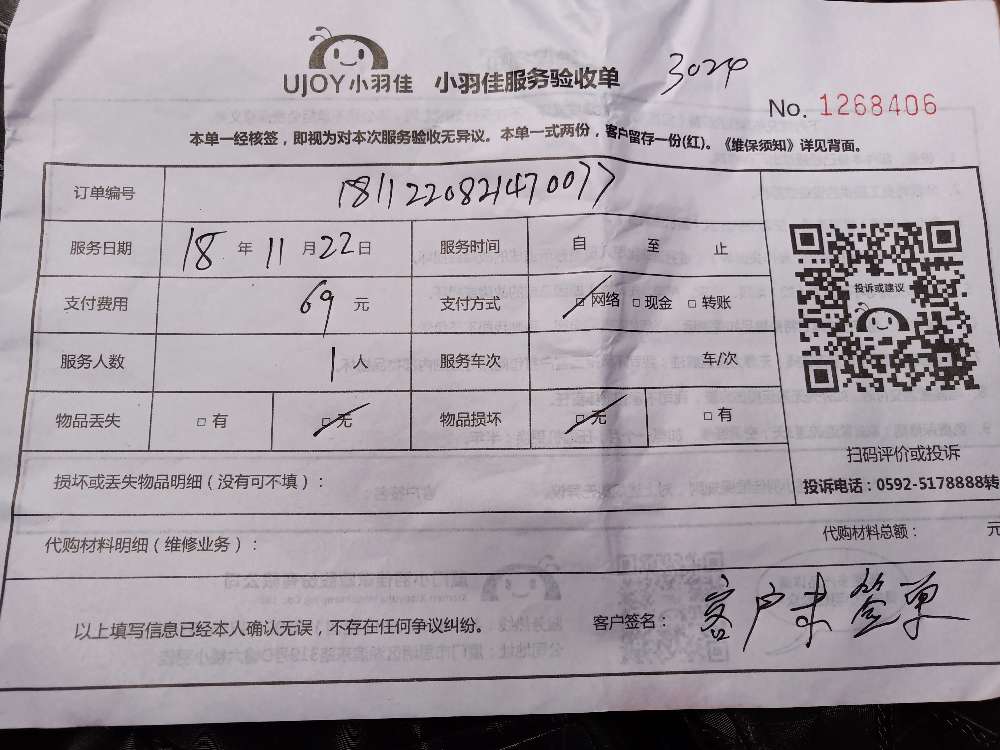 UJOY小羽佳 小羽佳服务验收单 3024
No. 1268406
本单一经核签，即视为对本次服务验收无异议。本单一式两份，客户留存一份(红)。《维保须知》详见背面。
订单编号 1811220821470077
服务日期 18 年 11 月 22 日 服务时间 自 至 止
支付费用 69 元 支付方式 □网络 □现金 □转账
投诉或建议
服务人数 1人 服务车次 车/次
物品丢失 □有 □无 物品损坏 □无 □有
扫码评价或投诉
损坏或丢失物品明细（没有可不填）：
投诉电话：0592-5178888转
代购材料明细（维修业务）： 代购材料总额： 元
以上填写信息已经本人确认无误，不存在任何争议纠纷。 客户签名： 客户未签单